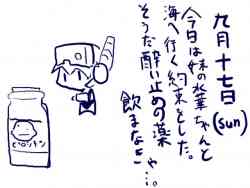 九月十七日(sun)
今日は妹の葉ちゃんと
海へ行く約束をした。
そうだ酔い止めの薬
飲まなきゃ…。